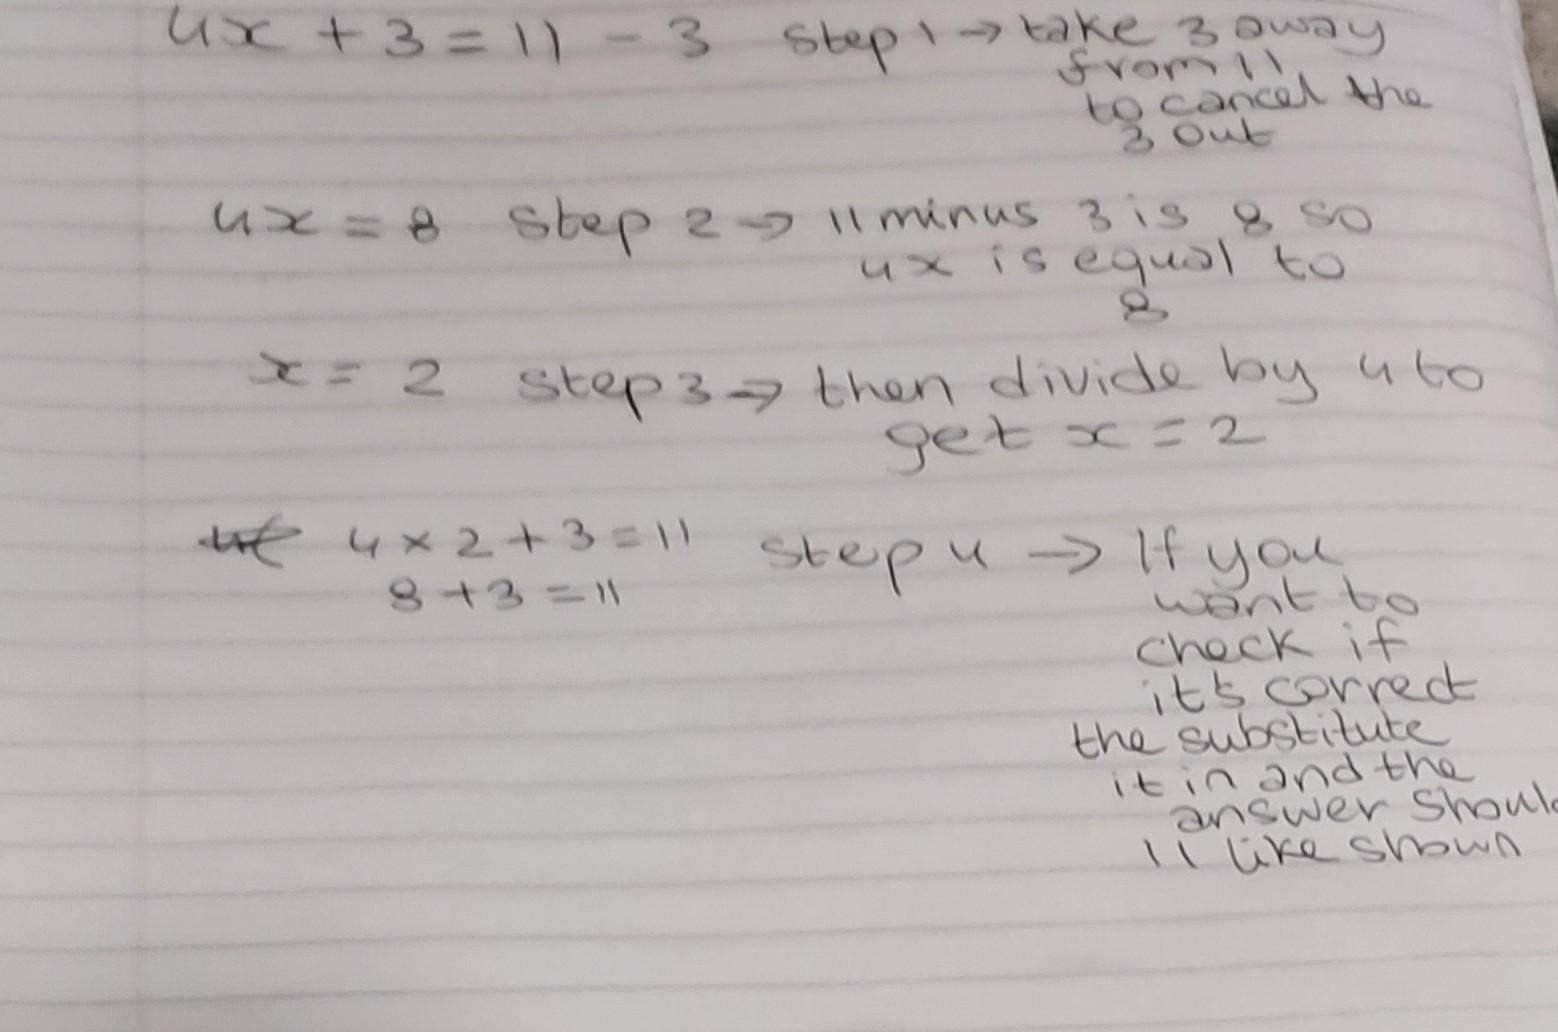 4x + 3 = 11 - 3 step 1 → take 3 away
from 11
to cancel the
3 out
4x = 8 step 2 → 11 minus 3 is 8 so
4x is equal to
8
x = 2 step 3 → then divide by 4 to
get x = 2
4 × 2 + 3 = 11 step 4 → If you
8 + 3 = 11 want to
check if
it's correct
the substitute
it in and the
answer should
11 like shown